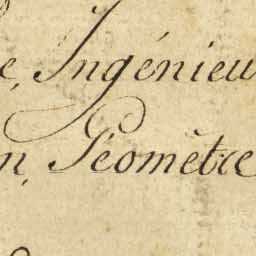 e, Ingénieu
n, Géomètre